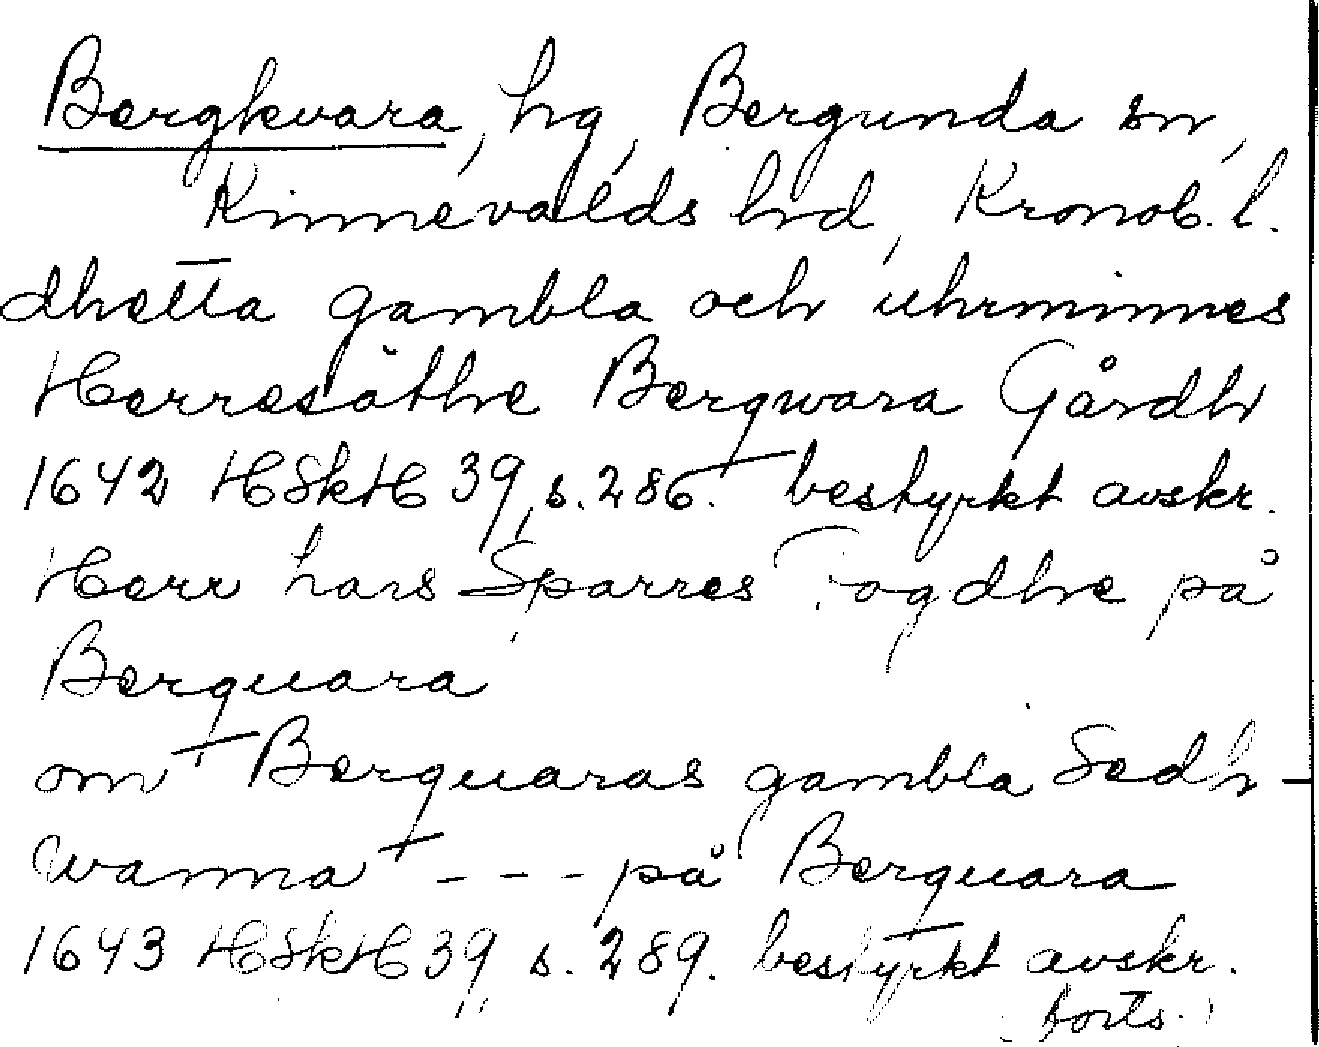 Bergkvara, hg, Bergunda sn,
Kinnevalds hd, Kronob. l.
dhetta gambla och uhrminnes
Herresäthe Bergwara Gårdh
1642 HSkH 39, s. 286. bestyrkt avskr.
Herr Lars Sparres Fogdhe på
Berquara
om Berquaras gambla Sedh-
wanna - - - på Berquara
1643 HSkH 39, s. 289. bestyrkt avskr.
(forts.)